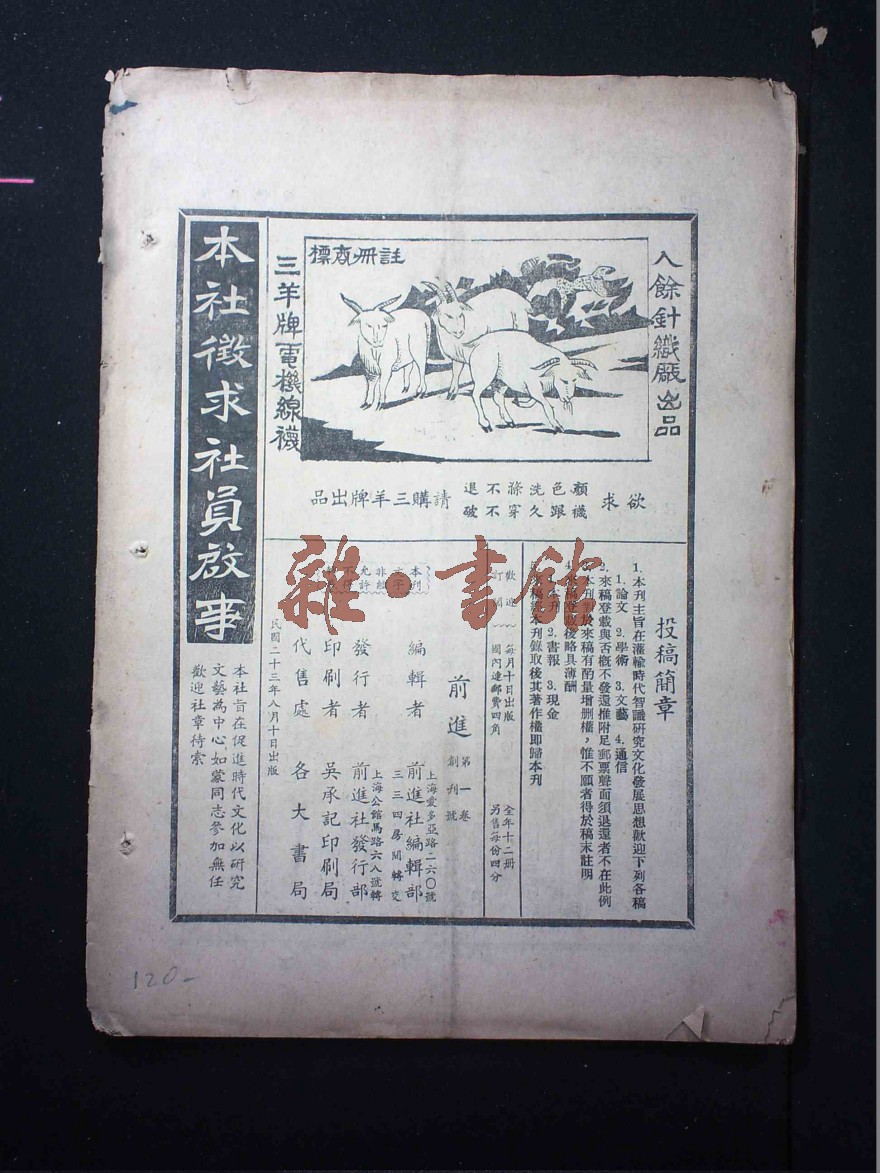 人餘針織厰出品
註册商標
三羊牌電機線襪
欲求
顏色洗滌不退
襪跟久穿不破
請購三羊牌出品
投稿簡章
1. 本刊主旨在灌輸時代智識研究文化發展思想歡迎下列各稿
1. 論文 2. 學術 3. 文藝 4. 通信
2. 來稿登載與否概不發還推附足郵票聲面須退還者不在此例
本刊對於來稿有酌量增删權，惟不願者得於稿末註明
4. 來稿登收後略具薄酬
1. 本刊 2. 書報 3. 現金
來稿經本刊錄取後其著作權即歸本刊
歡迎訂閱
每月十日出版
國內連郵費四角
全年十二册
另售每份四分
前進
第一卷
創刊號
編輯者
前進社編輯部
上海愛多亞路二六〇號
三三四房間轉交
發行者
前進社發行部
上海公館馬路六八號轉
印刷者
吳承記印刷局
代售處
各大書局
本刊
文字
非經
允許
不得
民國二十三年八月十日出版
本社徵求社員啟事
本社旨在促進時代文化以研究
文藝為中心如蒙同志參加無任
歡迎社章待索
雜·書館
120-